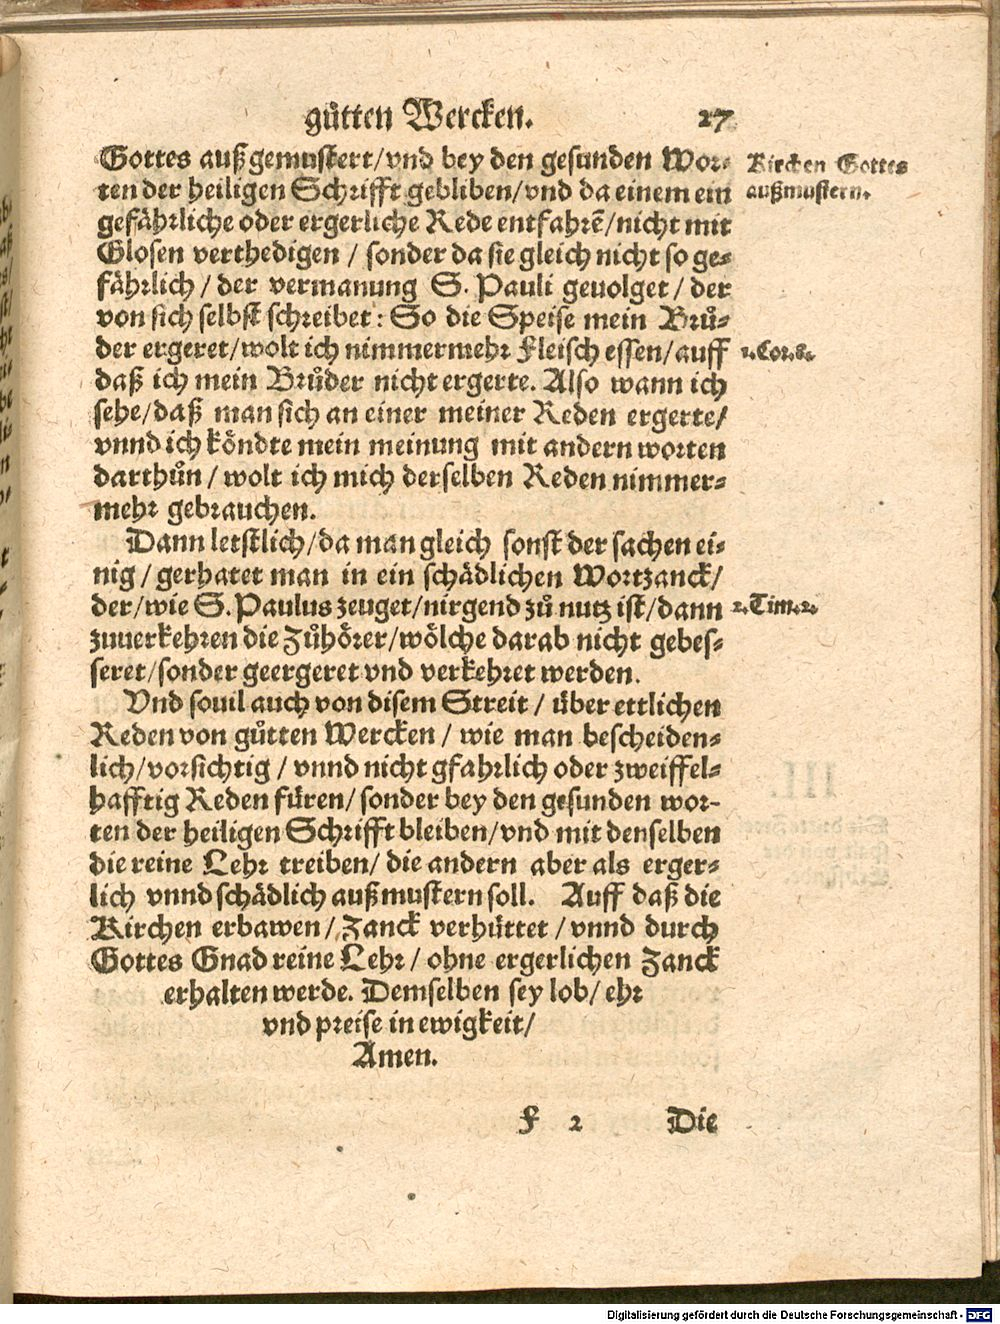 gůtten Wercken. 27
Gottes außgemustert/vnd bey den gesunden Wor-
Kirchen Gottes
ten der heiligen Schrifft gebliben/vnd da einem ein
außmustern.
gefährliche oder ergerliche Rede entfahrẽ/nicht mit
Glosen verthedigen / sonder da sie gleich nicht so ge-
fährlich / der vermanung S. Pauli geuolget / der
von sich selbst schreibet: So die Speise mein Brů-
der ergeret/wolt ich nimmermehr Fleisch essen/auff
1. Cor. 8.
daß ich mein Brůder nicht ergerte. Also wann ich
sehe/daß man sich an einer meiner Reden ergerte/
vnnd ich köndte mein meinung mit andern worten
darthůn / wolt ich mich derselben Reden nimmer-
mehr gebrauchen.
Dann letstlich/da man gleich sonst der sachen ei-
nig / gerhatet man in ein schädlichen Wortzanck/
der/wie S. Paulus zeuget/nirgend zů nutz ist/dann
2. Tim. 2.
zuuerkehren die Zůhörer/wölche darab nicht gebes-
seret/sonder geergeret vnd verkehret werden.
Vnd souil auch von disem Streit / über ettlichen
Reden von gůtten Wercken / wie man bescheiden-
lich/vorsichtig / vnnd nicht gfahrlich oder zweiffel-
hafftig Reden füren/ sonder bey den gesunden wor-
ten der heiligen Schrifft bleiben/vnd mit denselben
die reine Lehr treiben/ die andern aber als erger-
lich vnnd schädlich außmustern soll. Auff daß die
Kirchen erbawen / Zanck verhüttet / vnnd durch
Gottes Gnad reine Lehr / ohne ergerlichen Zanck
erhalten werde. Demselben sey lob/ ehr
vnd preise in ewigkeit/
Amen.
F 2 Die
Digitalisierung gefördert durch die Deutsche Forschungsgemeinschaft - DFG